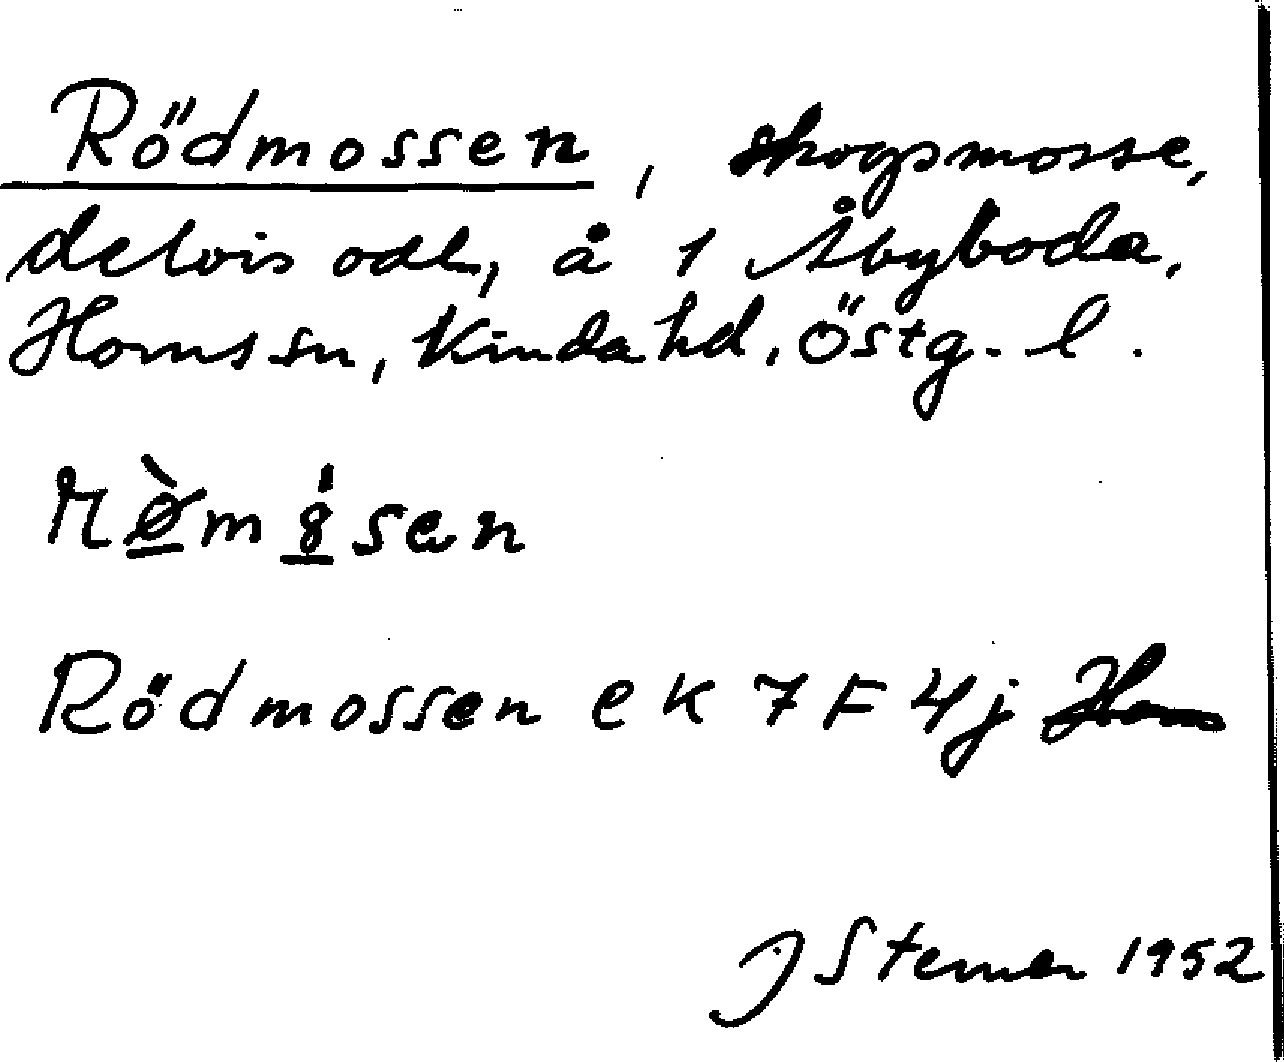 Rödmossen, skogsmosse,
delvis odl., å 1 Åbyboda,
Horns sn, Kinda hd, Östg. l.
Rödmossen ek 7 F 4j Horn
J Sterner 1952